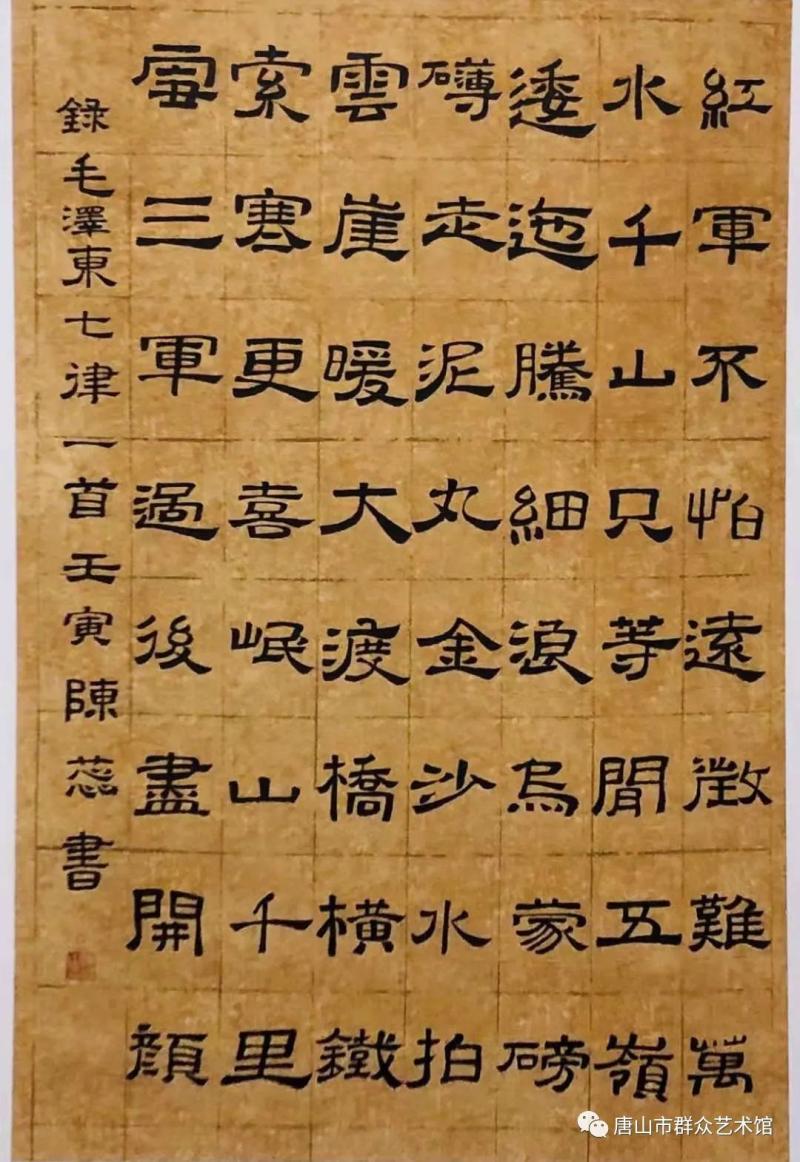 紅軍不怕遠徵難萬
水千山只等閒五嶺
逶迤騰細浪烏蒙磅
礴走泥丸金沙水拍
雲崖暖大渡橋橫鐵
索寒更喜岷山千里
雪三軍過後盡開顏
錄毛澤東七律一首壬寅陳蕊書
唐山市群众艺术馆